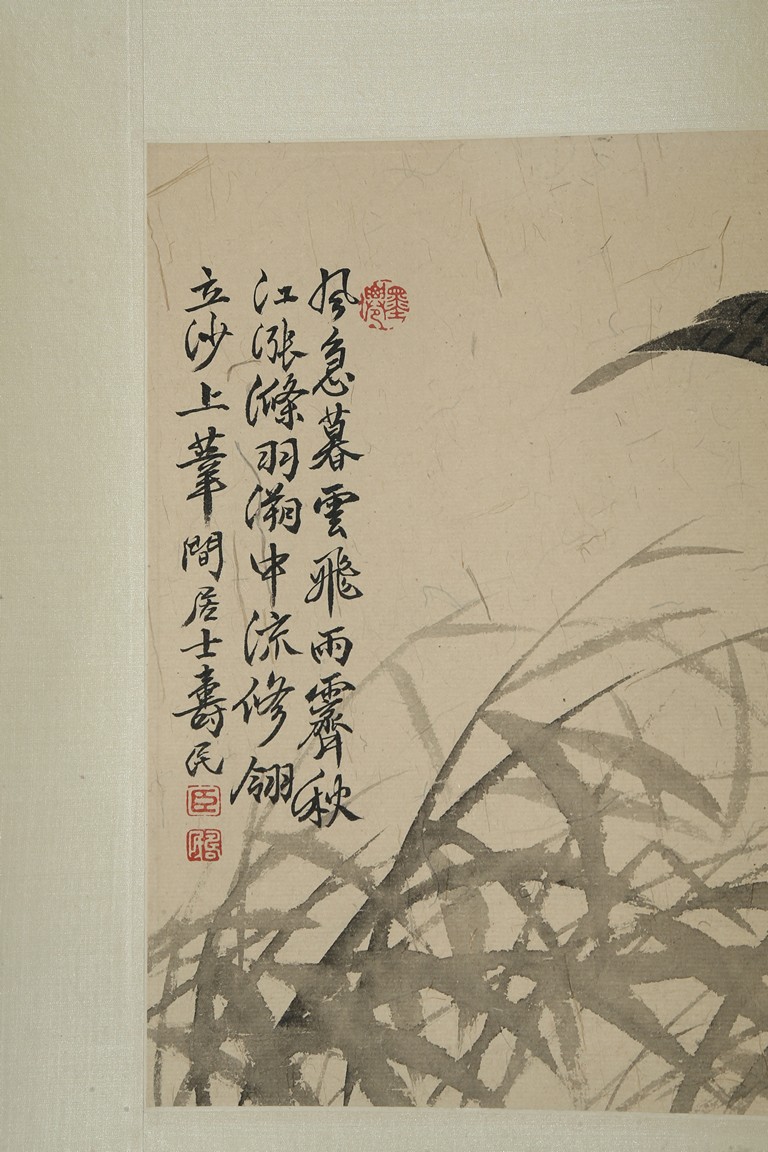 風急暮雲飛雨霽秋
江漲滌羽溯中流修翎
立沙上葦間居士壽民